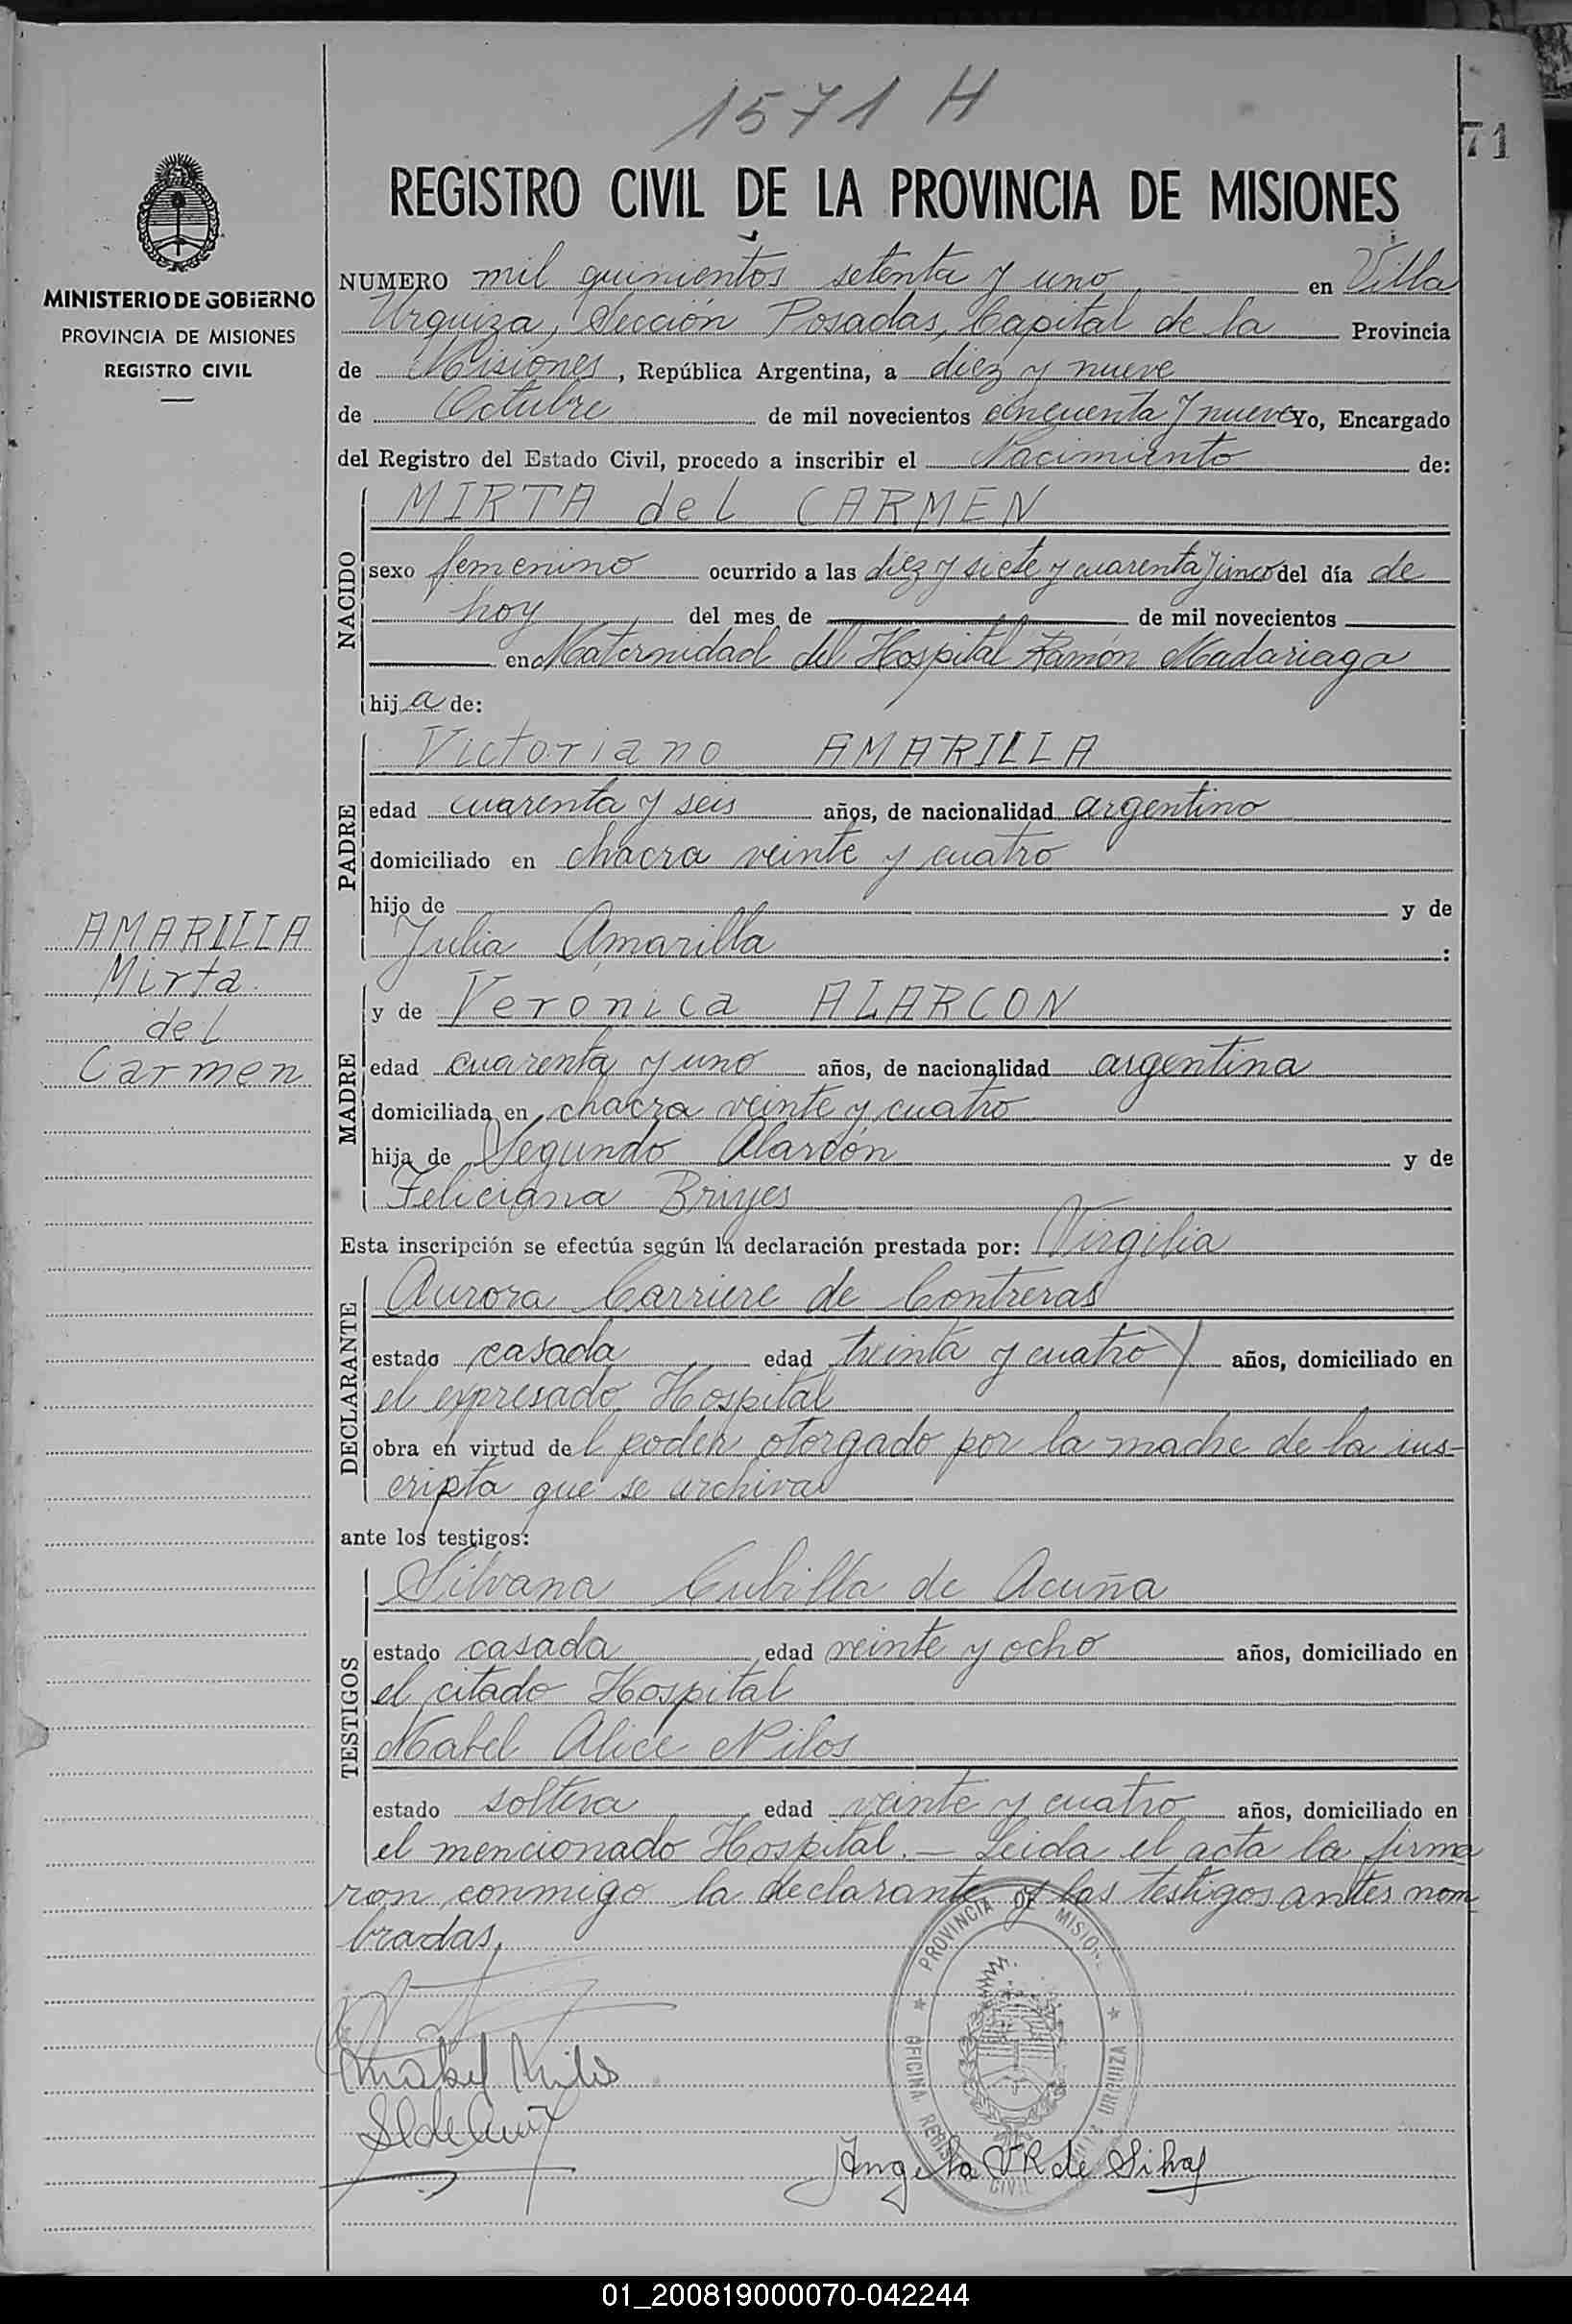 1571 H
71
REGISTRO CIVIL DE LA PROVINCIA DE MISIONES
MINISTERIO DE GOBIERNO
PROVINCIA DE MISIONES
REGISTRO CIVIL
NUMERO mil quinientos setenta y uno en Villa
Urquiza, Sección Posadas, Capital de la Provincia
de Misiones, República Argentina, a diez y nueve
de Octubre de mil novecientos cincuenta y nueve Yo, Encargado
del Registro del Estado Civil, procedo a inscribir el Nacimiento de:
NACIDO
MIRTA del CARMEN
sexo femenino ocurrido a las diez y siete y cuarenta y cinco del día de
hoy del mes de de mil novecientos
en Maternidad del Hospital Ramón Madariaga
hij a de:
PADRE
Victoriano AMARILLA
edad cuarenta y seis años, de nacionalidad argentino
domiciliado en chacra veinte y cuatro
hijo de y de
Julia Amarilla :
AMARILLA
Mirta
del
Carmen
MADRE
y de Veronica ALARCON
edad cuarenta y uno años, de nacionalidad argentina
domiciliada en chacra veinte y cuatro
hija de Segundo Alarcón y de
Feliciana
Esta inscripción se efectúa según la declaración prestada por: Virgilia
DECLARANTE
Aurora Carriere de Contreras
estado casada edad treinta y cuatro años, domiciliado en
el expresado Hospital
obra en virtud de l poder otorgado por la madre de la ins-
cripta que se archiva
ante los testigos:
TESTIGOS
Silvana Cubilla de Acuña
estado casada edad veinte y ocho años, domiciliado en
el citado Hospital
Mabel Alice Nilos
estado soltera edad veinte y cuatro años, domiciliado en
el mencionado Hospital. — Leida el acta la firma
ron conmigo la declarante y las testigos antes nom
bradas.
PROVINCIA DE MISIONES
OFICINA REGISTRO CIVIL VILLA URQUIZA
Mabel Nilos
Angela VR de Silva
01_200819000070-042244